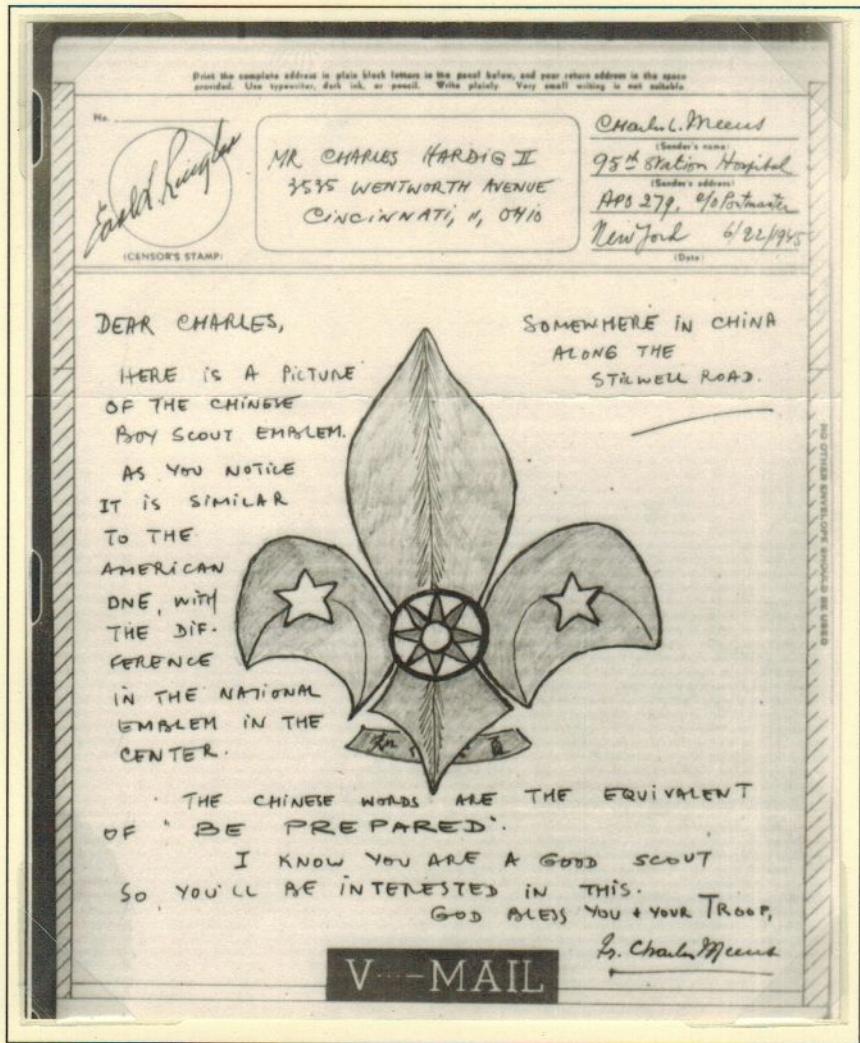 Print the complete address in plain block letters in the panel below, and your return address in the space
provided. Use typewriter, dark ink, or pencil. Write plainly. Very small writing is not suitable.
No.
(CENSOR'S STAMP)
MR CHARLES HARDIG II
3535 WENTWORTH AVENUE
CINCINNATI, 11, OHIO
Charles L. Meeus
(Sender's name)
95th Station Hospital
(Sender's address)
APO 279, c/o Postmaster
New York 6/22/1945
(Date)
SOMEWHERE IN CHINA
ALONG THE
STILWELL ROAD.
DEAR CHARLES,
HERE IS A PICTURE
OF THE CHINESE
BOY SCOUT EMBLEM.
AS YOU NOTICE
IT IS SIMILAR
TO THE
AMERICAN
ONE, WITH
THE DIF-
FERENCE
IN THE NATIONAL
EMBLEM IN THE
CENTER.
THE CHINESE WORDS ARE THE EQUIVALENT
OF "BE PREPARED".
I KNOW YOU ARE A GOOD SCOUT
SO YOU'LL BE INTERESTED IN THIS.
GOD BLESS YOU + YOUR TROOP,
Fr. Charles Meeus
V···—MAIL
NO OTHER ENVELOPE SHOULD BE USED